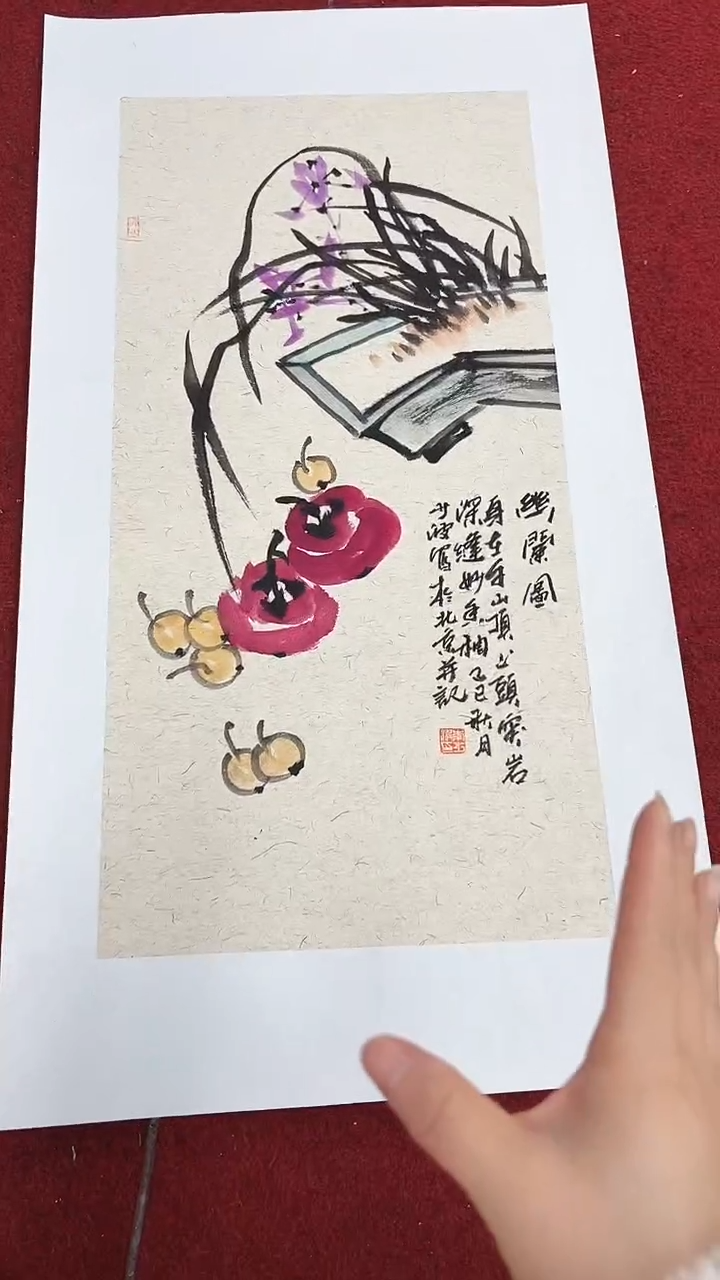 幽蘭圖
身在千山頂上頭突岩
深縫妙香稠乙巳秋月
寫於北京并記